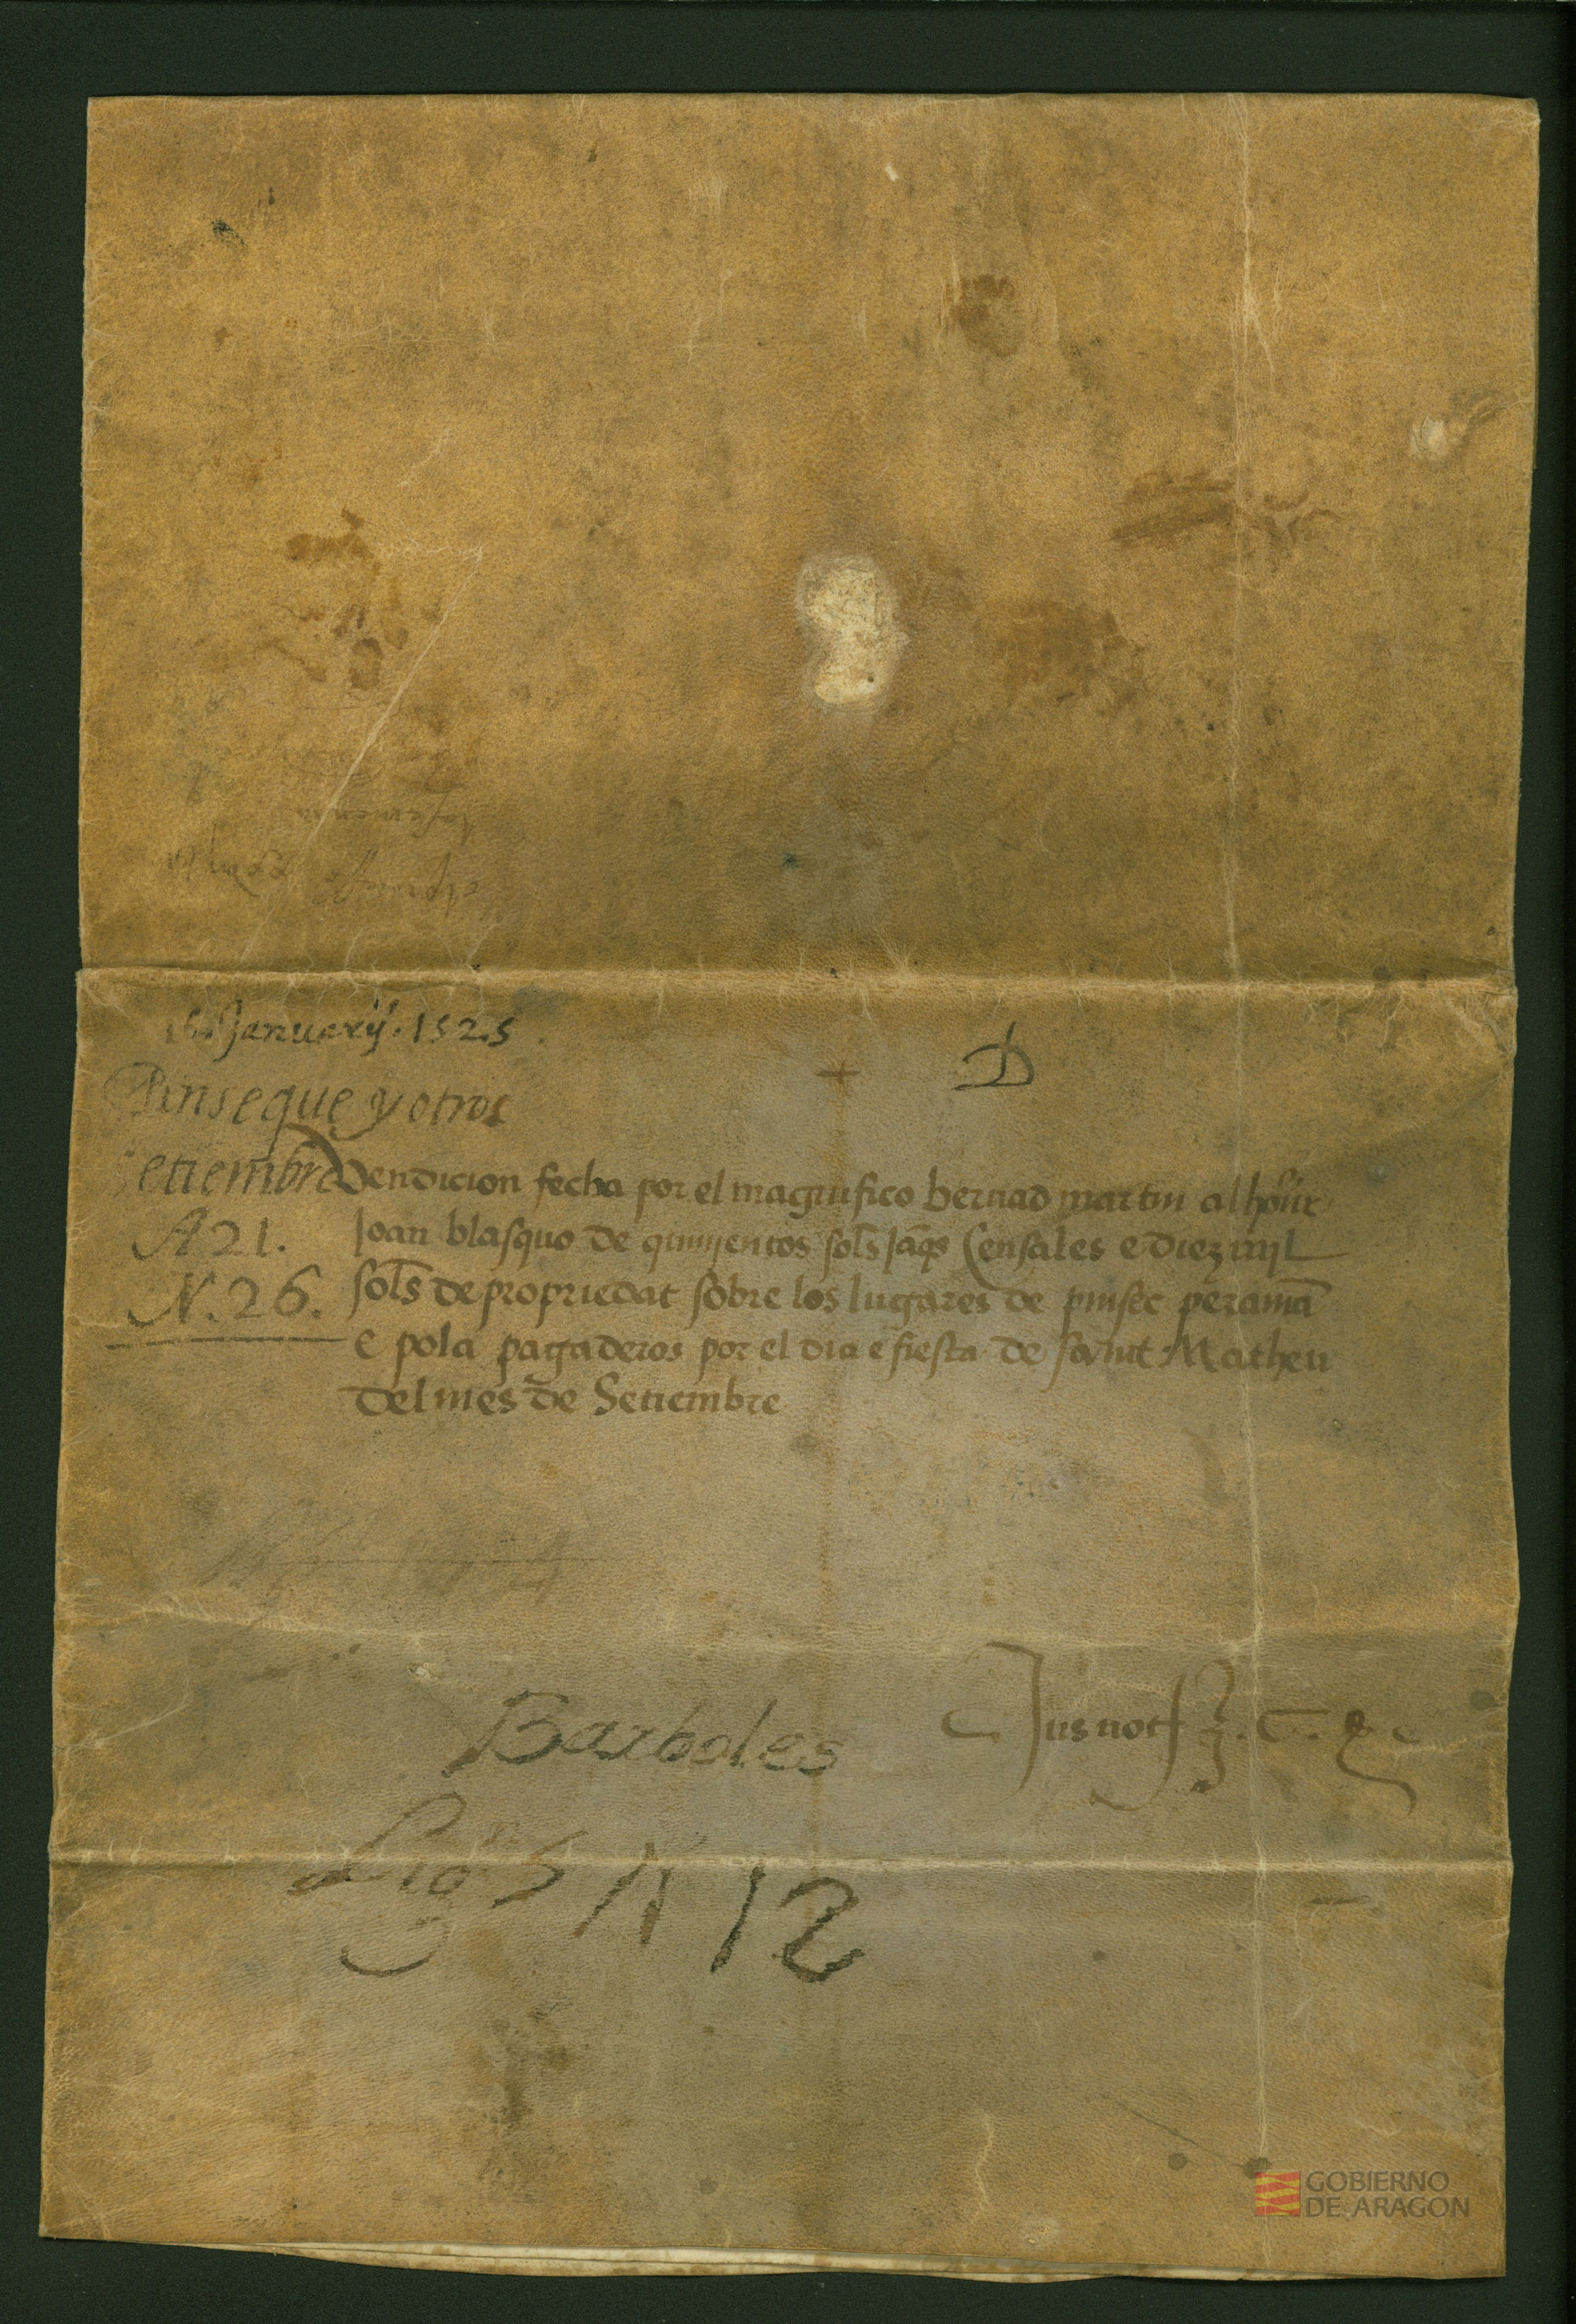 Januarij. 1525
D
Pinseque y otros
Setiembre
A 21.
N. 26.
Vendicion fecha por el magnifico bernad martin al honr
Joan blasquo de quinyentos sols jaqs Censales e diez mil
sols de propriedat sobre los lugares de pinsec peraman
e pola pagaderos por el dia e fiesta de sanct Matheu
del mes de Setiembre
Barboles
Jus not
Lig 5 N 12
GOBIERNO
DE ARAGON